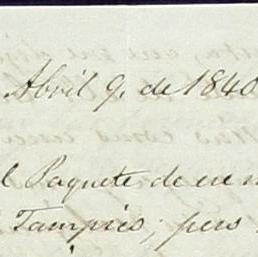 Abril 9, de 1840
Paquete de en
Tampico; pero